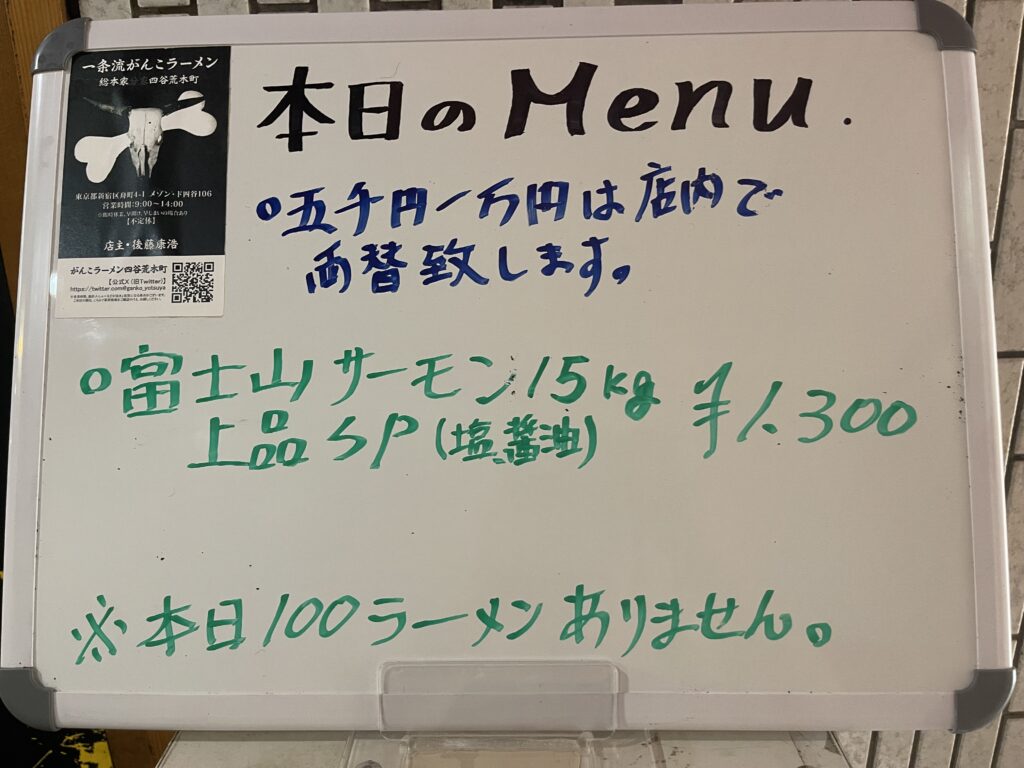 一条流がんこラーメン
総本家分家四谷荒木町
東京都新宿区舟町4-1 メゾン・ド四谷106
営業時間:9:00～14:00
【不定休】
店主・後藤康浩
がんこラーメン四谷荒木町
【公式X(旧Twitter)】
https://twitter.com@ganko_yotsuya
本日のMenu.
○五千円一万円は店内で
両替致します。
○富士山サーモン15kg
上品SP(塩、醤油) ¥1.300
※本日100ラーメンありません。